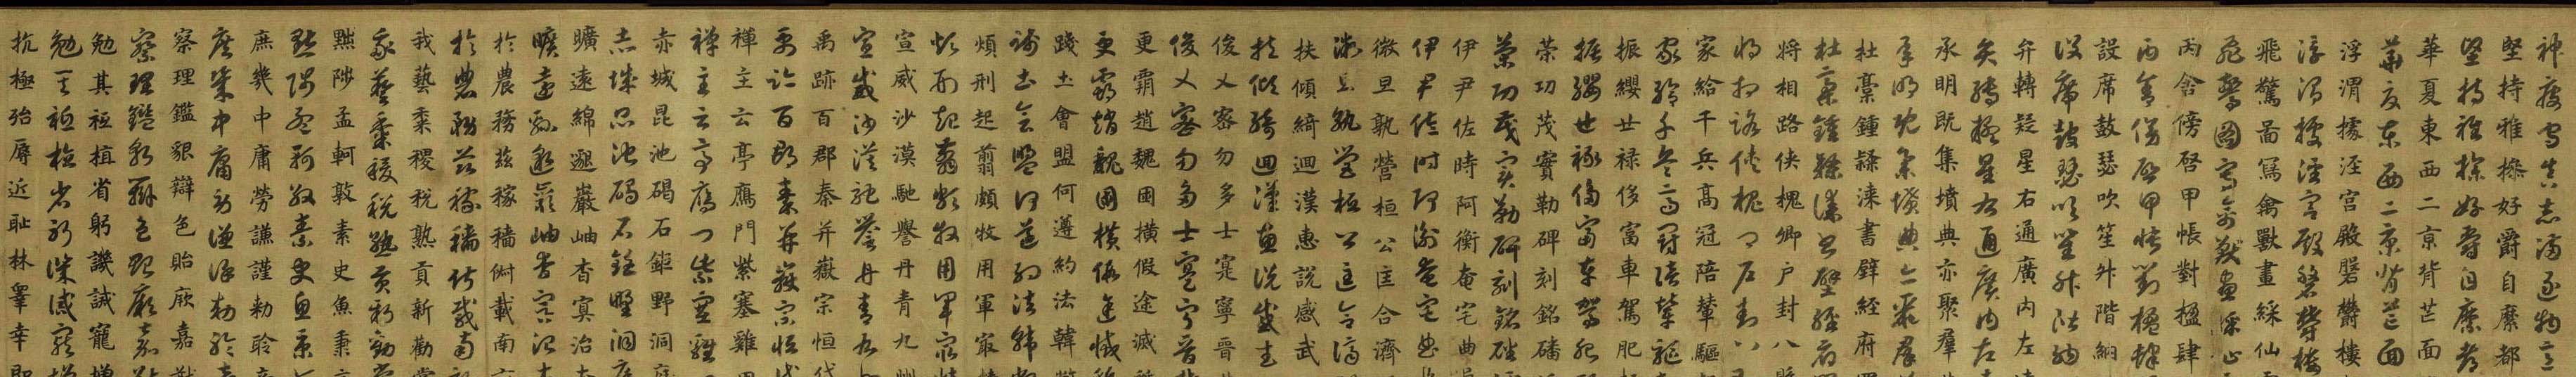 神疲守真志滿逐物意
堅持雅操好爵自縻都
堅持雅操好爵自縻都
華夏東西二京背芒面
華夏東西二京背芒面
浮渭據涇宮殿磐欝樓
浮渭據涇宮殿磐欝樓
飛驚啚寫禽獸畫綵仙
飛驚圖寫禽獸畫綵仙
丙舍傍啓甲帳對楹肆
丙舍傍啓甲帳對楹肆
設席鼓瑟吹笙升階納
設席鼓瑟吹笙升階納
弁轉疑星右通廣內左
弁轉疑星右通廣內左
承明既集墳典亦聚羣
承明既集墳典亦聚羣
杜稾鍾隸漆書壁經府
杜稾鍾隸漆書壁經府
將相路俠槐卿户封八
將相路俠槐卿户封八
家給千兵高冠陪輦驅
家給千兵高冠陪輦驅
振纓世禄侈富車駕肥
振纓世禄侈富車駕肥
策功茂實勒碑刻銘磻
策功茂實勒碑刻銘磻
伊尹佐時阿衡奄宅曲
伊尹佐時阿衡奄宅曲
微旦孰營桓公匡合濟
微旦孰營桓公匡合濟
扶傾綺迴漢惠說感武
扶傾綺迴漢惠說感武
俊乂密勿多士寔寧晉
俊乂密勿多士寔寧晉
更霸趙魏困橫假途滅
更霸趙魏困橫假途滅
踐土會盟何遵約法韓
踐土會盟何遵約法韓
煩刑起翦頗牧用軍最
煩刑起翦頗牧用軍最
宣威沙漠馳譽丹青九
宣威沙漠馳譽丹青九
禹跡百郡秦并嶽宗恒
禹跡百郡秦并嶽宗恒
禪主云亭鴈門紫塞雞
禪主云亭鴈門紫塞雞
赤城昆池碣石鉅野洞
赤城昆池碣石鉅野洞
曠遠綿邈巖岫杳冥治
曠遠綿邈巖岫杳冥治
於農務茲稼穡俶載南
於農務茲稼穡俶載南
我藝黍稷稅熟貢新勸
我藝黍稷稅熟貢新勸
黜陟孟軻敦素史魚秉
黜陟孟軻敦素史魚秉
庶幾中庸勞謙謹勑聆
庶幾中庸勞謙謹勑聆
察理鑑貌辯色貽厥嘉
察理鑑貌辯色貽厥嘉
勉其祗植省躬譏誡寵
勉其祗植省躬譏誡寵
抗極殆辱近耻林睪幸